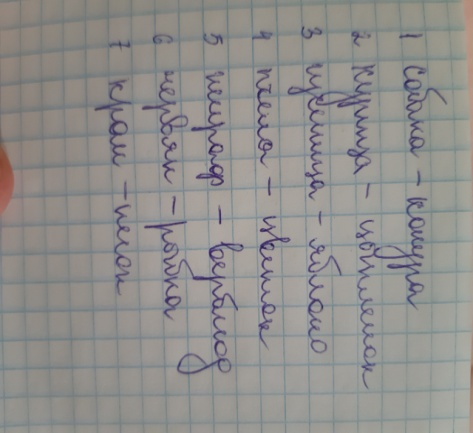 1 собака – конура
2 курица – цыпленок
3 гусеница – яблоко
4 пчела – цветок
5 жираф – верблюд
6 червяк – рыбка
7 кран – песок